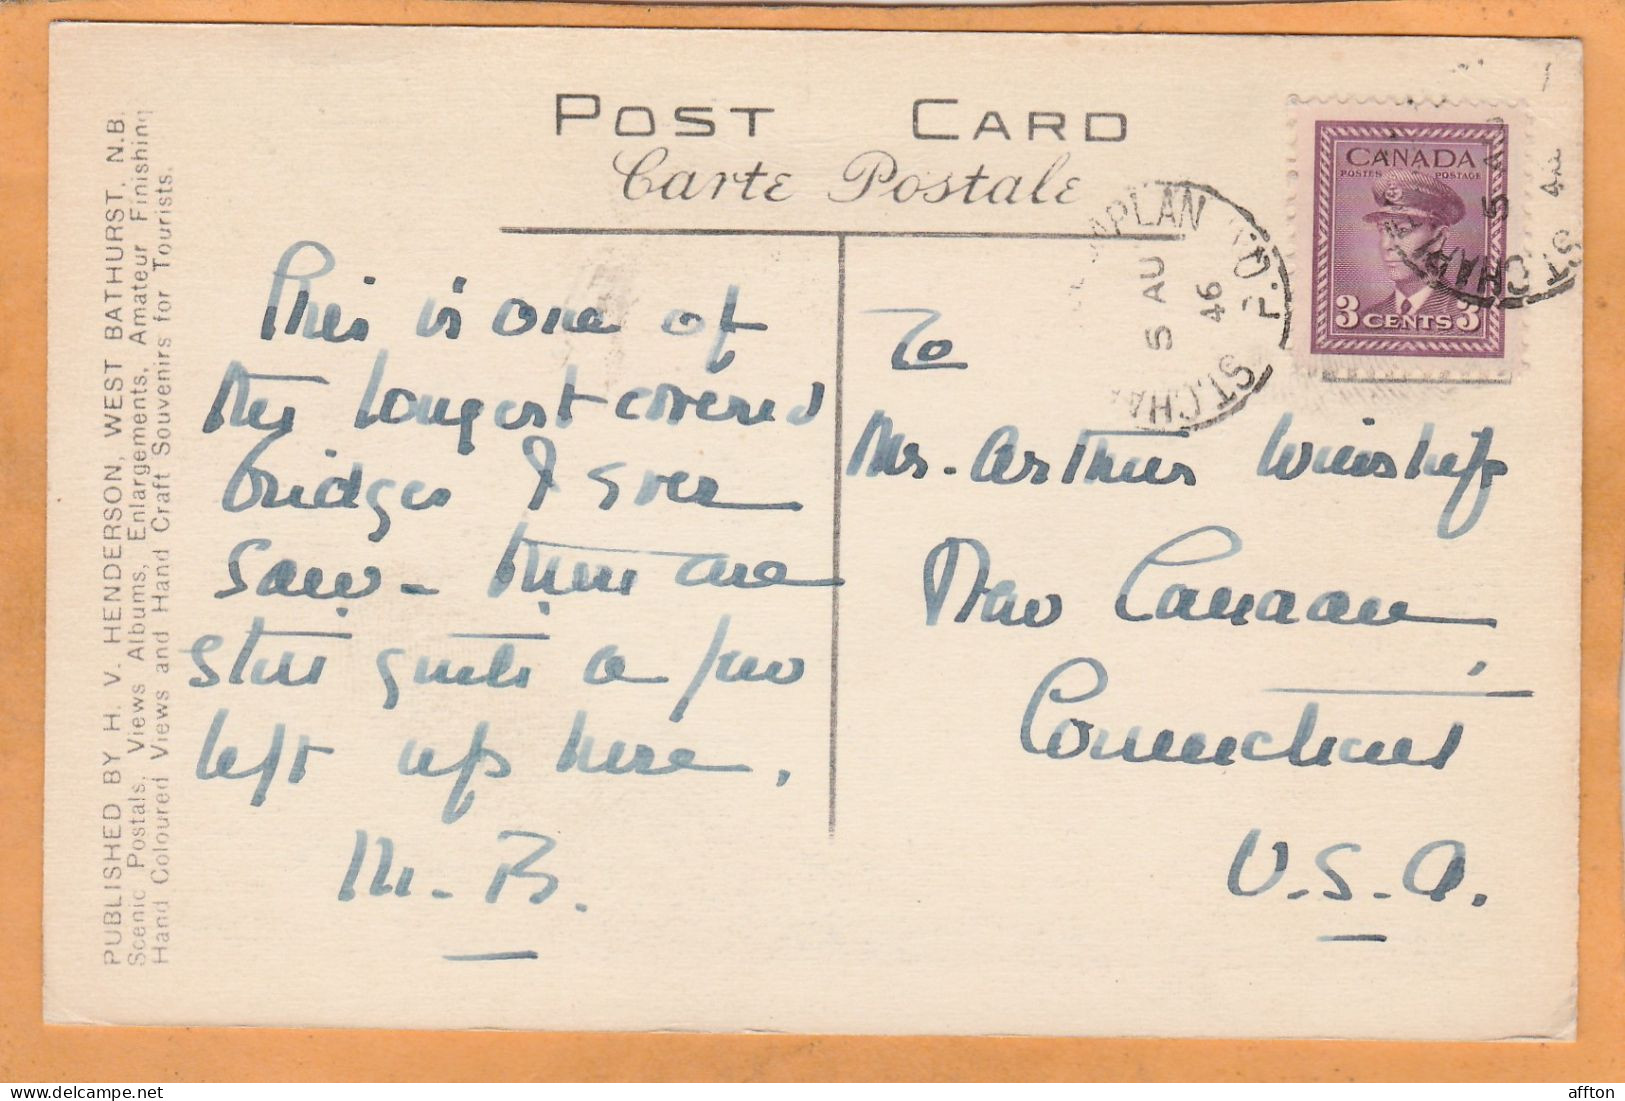 POST CARD
Carte Postale
PUBLISHED BY H. V. HENDERSON, WEST BATHURST, N.B.
Scenic Postals, Views Albums, Enlargements, Amateur Finishing
Hand Coloured Views and Hand Craft Souvenirs for Tourists.
This is one of
the longest covered
bridges I ever
saw - there are
still quite a few
left up here.
M. B.
CANADA
POSTES POSTAGE
3 CENTS 3
APLAN
5 AU
46
P.Q.
ST.CHA
5
ST.CHA
To
Mrs. Arthur Winship
New Canaan,
Connecticut
U.S.A.
affton